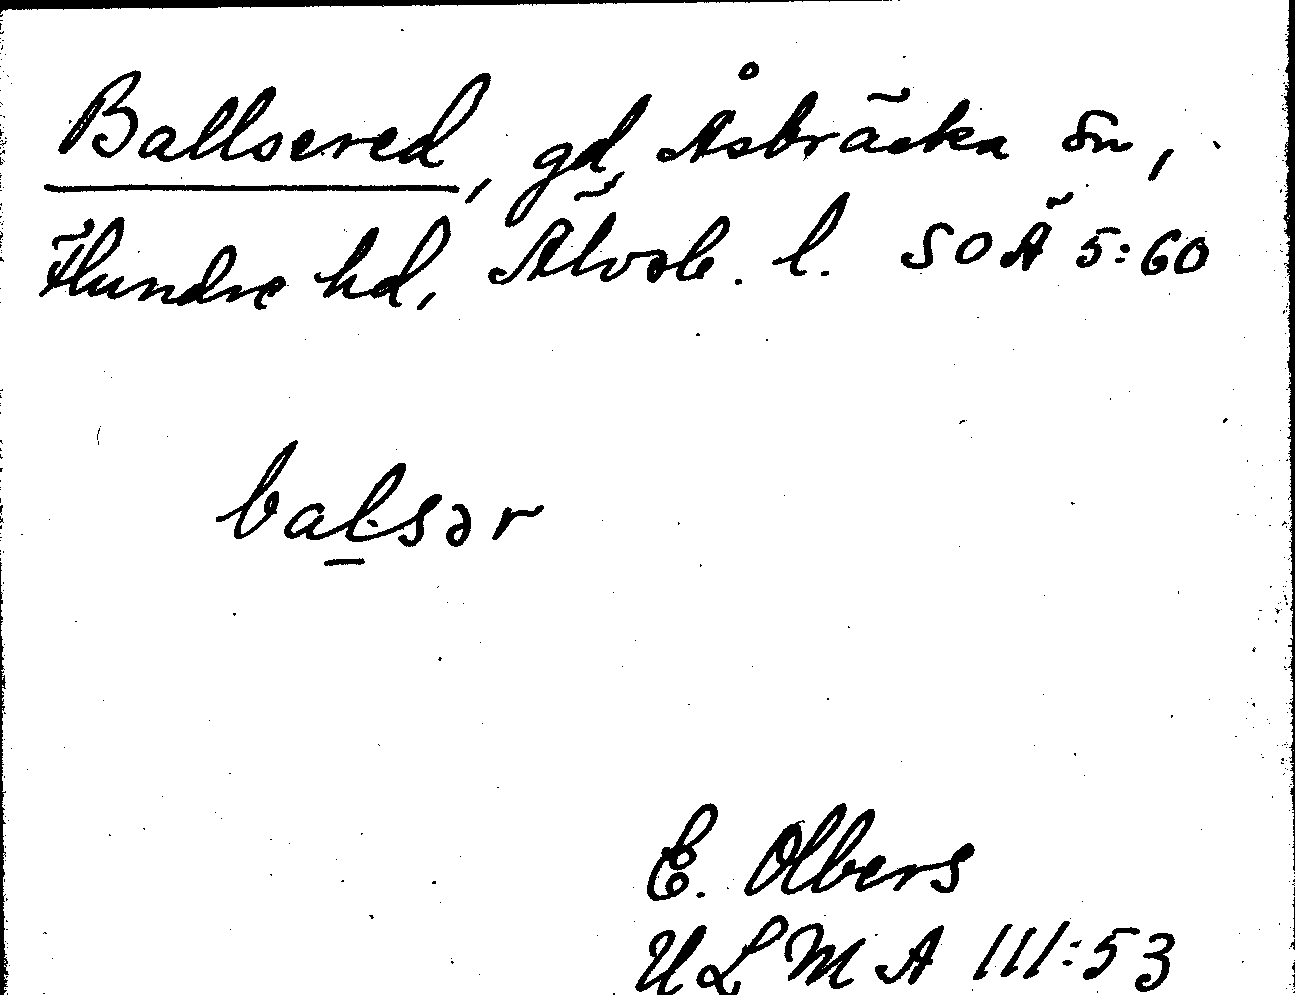 Ballsered, gd, Åsbräcka sn,
Flundre hd, Älvsb. l. SOÄ 5:60
bal̠sər
E. Olbers
ULMA 111:53